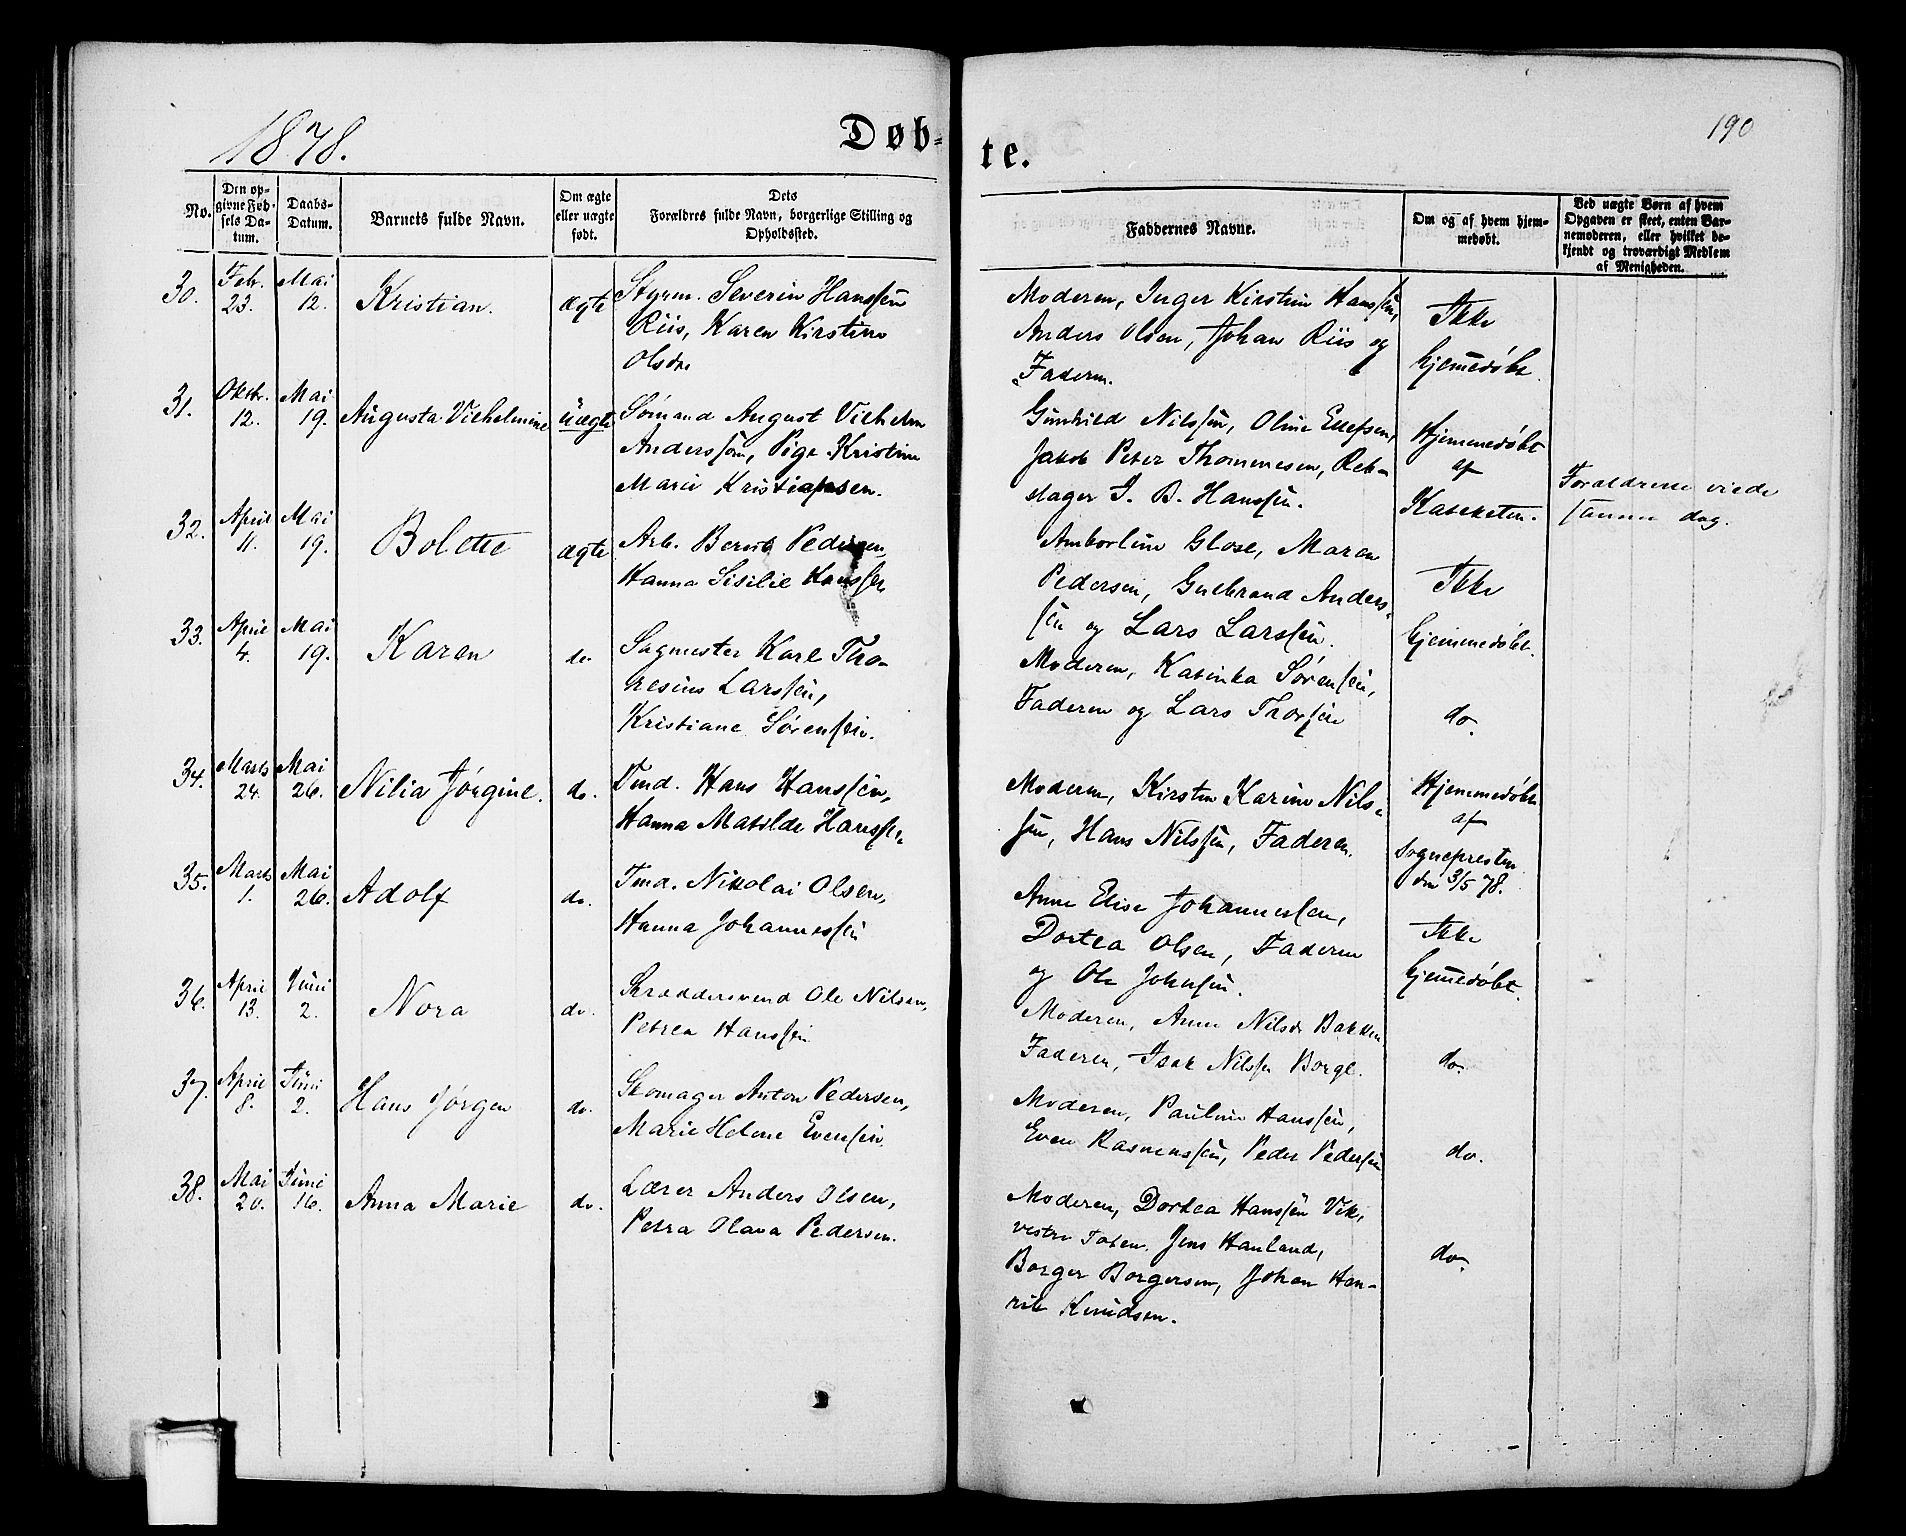 1878.
Døb-
te.
190
No.
Den op-
givne Fød-
sels Da-
tum.
Daabs-
Datum.
Barnets fulde Navn.
Om ægte
eller uægte
født.
Dets
Forældres fulde Navn, borgerlige Stilling og
Opholdssted.
Faddernes Navne.
Om og af hvem hjem-
medøbt.
Ved uægte Børn af hvem
Opgaven er skeet, enten Bar-
nemoderen, eller hvilket be-
kjendt og troværdigt Medlem
af Menigheden.
30.
Febr.
23.
Mai
12.
Kristian.
ægte
Styrm. Severin Hanssen
Riis, Karen Kirstine
Olsdr.
Moderen, Inger Kirstine Hanssen,
Anders Olsen, Johan Riis og
Faderen.
Ikke
hjemmedøbt.
31.
Oktbr.
12.
Mai
19.
Augusta Vilhelmine
uægte
Sømand August Vilhelm
Anderssøn, Pige Kristine
Marie Kristiansen.
Gunhild Nilssen, Oline Ellefsen,
Jakob Peter Thommesen, Reb-
slager I. B. Hanssen.
Hjemmedøbt
af
Kateketen.
Forældrene viede
samme dag.
32.
April
11.
Mai
19.
Bolette
ægte
Arb. Bernt Pedersen,
Hanna Sisilie Hanssen
Amborline Glose, Maren
Pedersen, Gulbrand Anders-
sen og Lars Larssen.
Ikke
hjemmedøbt.
33.
April
4.
Mai
19.
Karen
do.
Sagmester Karl Tho-
resius Larssen,
Kristiane Sørenssen.
Moderen, Katinka Sørenssen,
Faderen og Lars Thorsen
do.
34.
Marts
24.
Mai
26.
Nilia Jørgine.
do.
Tmd. Hans Hanssen,
Hanna Matilde Hanssen
Moderen, Kirsten Karine Nils-
sen, Hans Nilssen, Faderen.
Hjemmedøbt
af
Sognepresten
den 3/5 78.
35.
Marts
1.
Mai
26.
Adolf
do.
Tmd. Nikolai Olsen,
Hanna Johannessen
Anne Elise Johannessen,
Dortea Olsen, Faderen
og Ole Johnsen.
Ikke
hjemmedøbt.
36.
April
13.
Juni
2.
Nora
do.
Skræddersvend Ole Nilsen,
Petrea Hanssen
Moderen, Anne Nilsdr Bakken
Faderen, Isak Nilssen Borge.
do.
37.
April
8.
Juni
2.
Hans Jørgen
do.
Skomager Anton Pedersen,
Marie Helene Evensen.
Moderen, Pauline Hanssen,
Even Rasmussen, Peder Pedersen
do.
38.
Mai
20.
Juni
16.
Anna Marie
do.
Lærer Anders Olsen,
Petra Olava Pedersen.
Moderen, Dortea Hanssen Vik,
vestre Toten. Jens Hanland,
Borger Borgersen, Johan Hen-
rik Knudsen.
do.